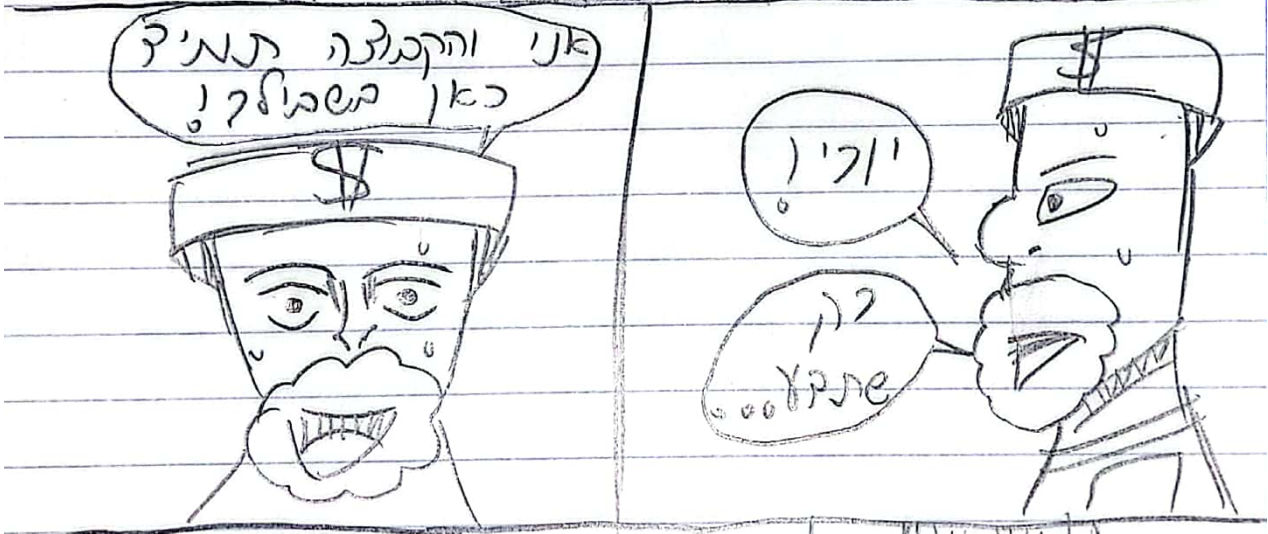 $
יורי!
רק
שתדע...
אני והקבוצה תמיד
כאן בשבילך!
$